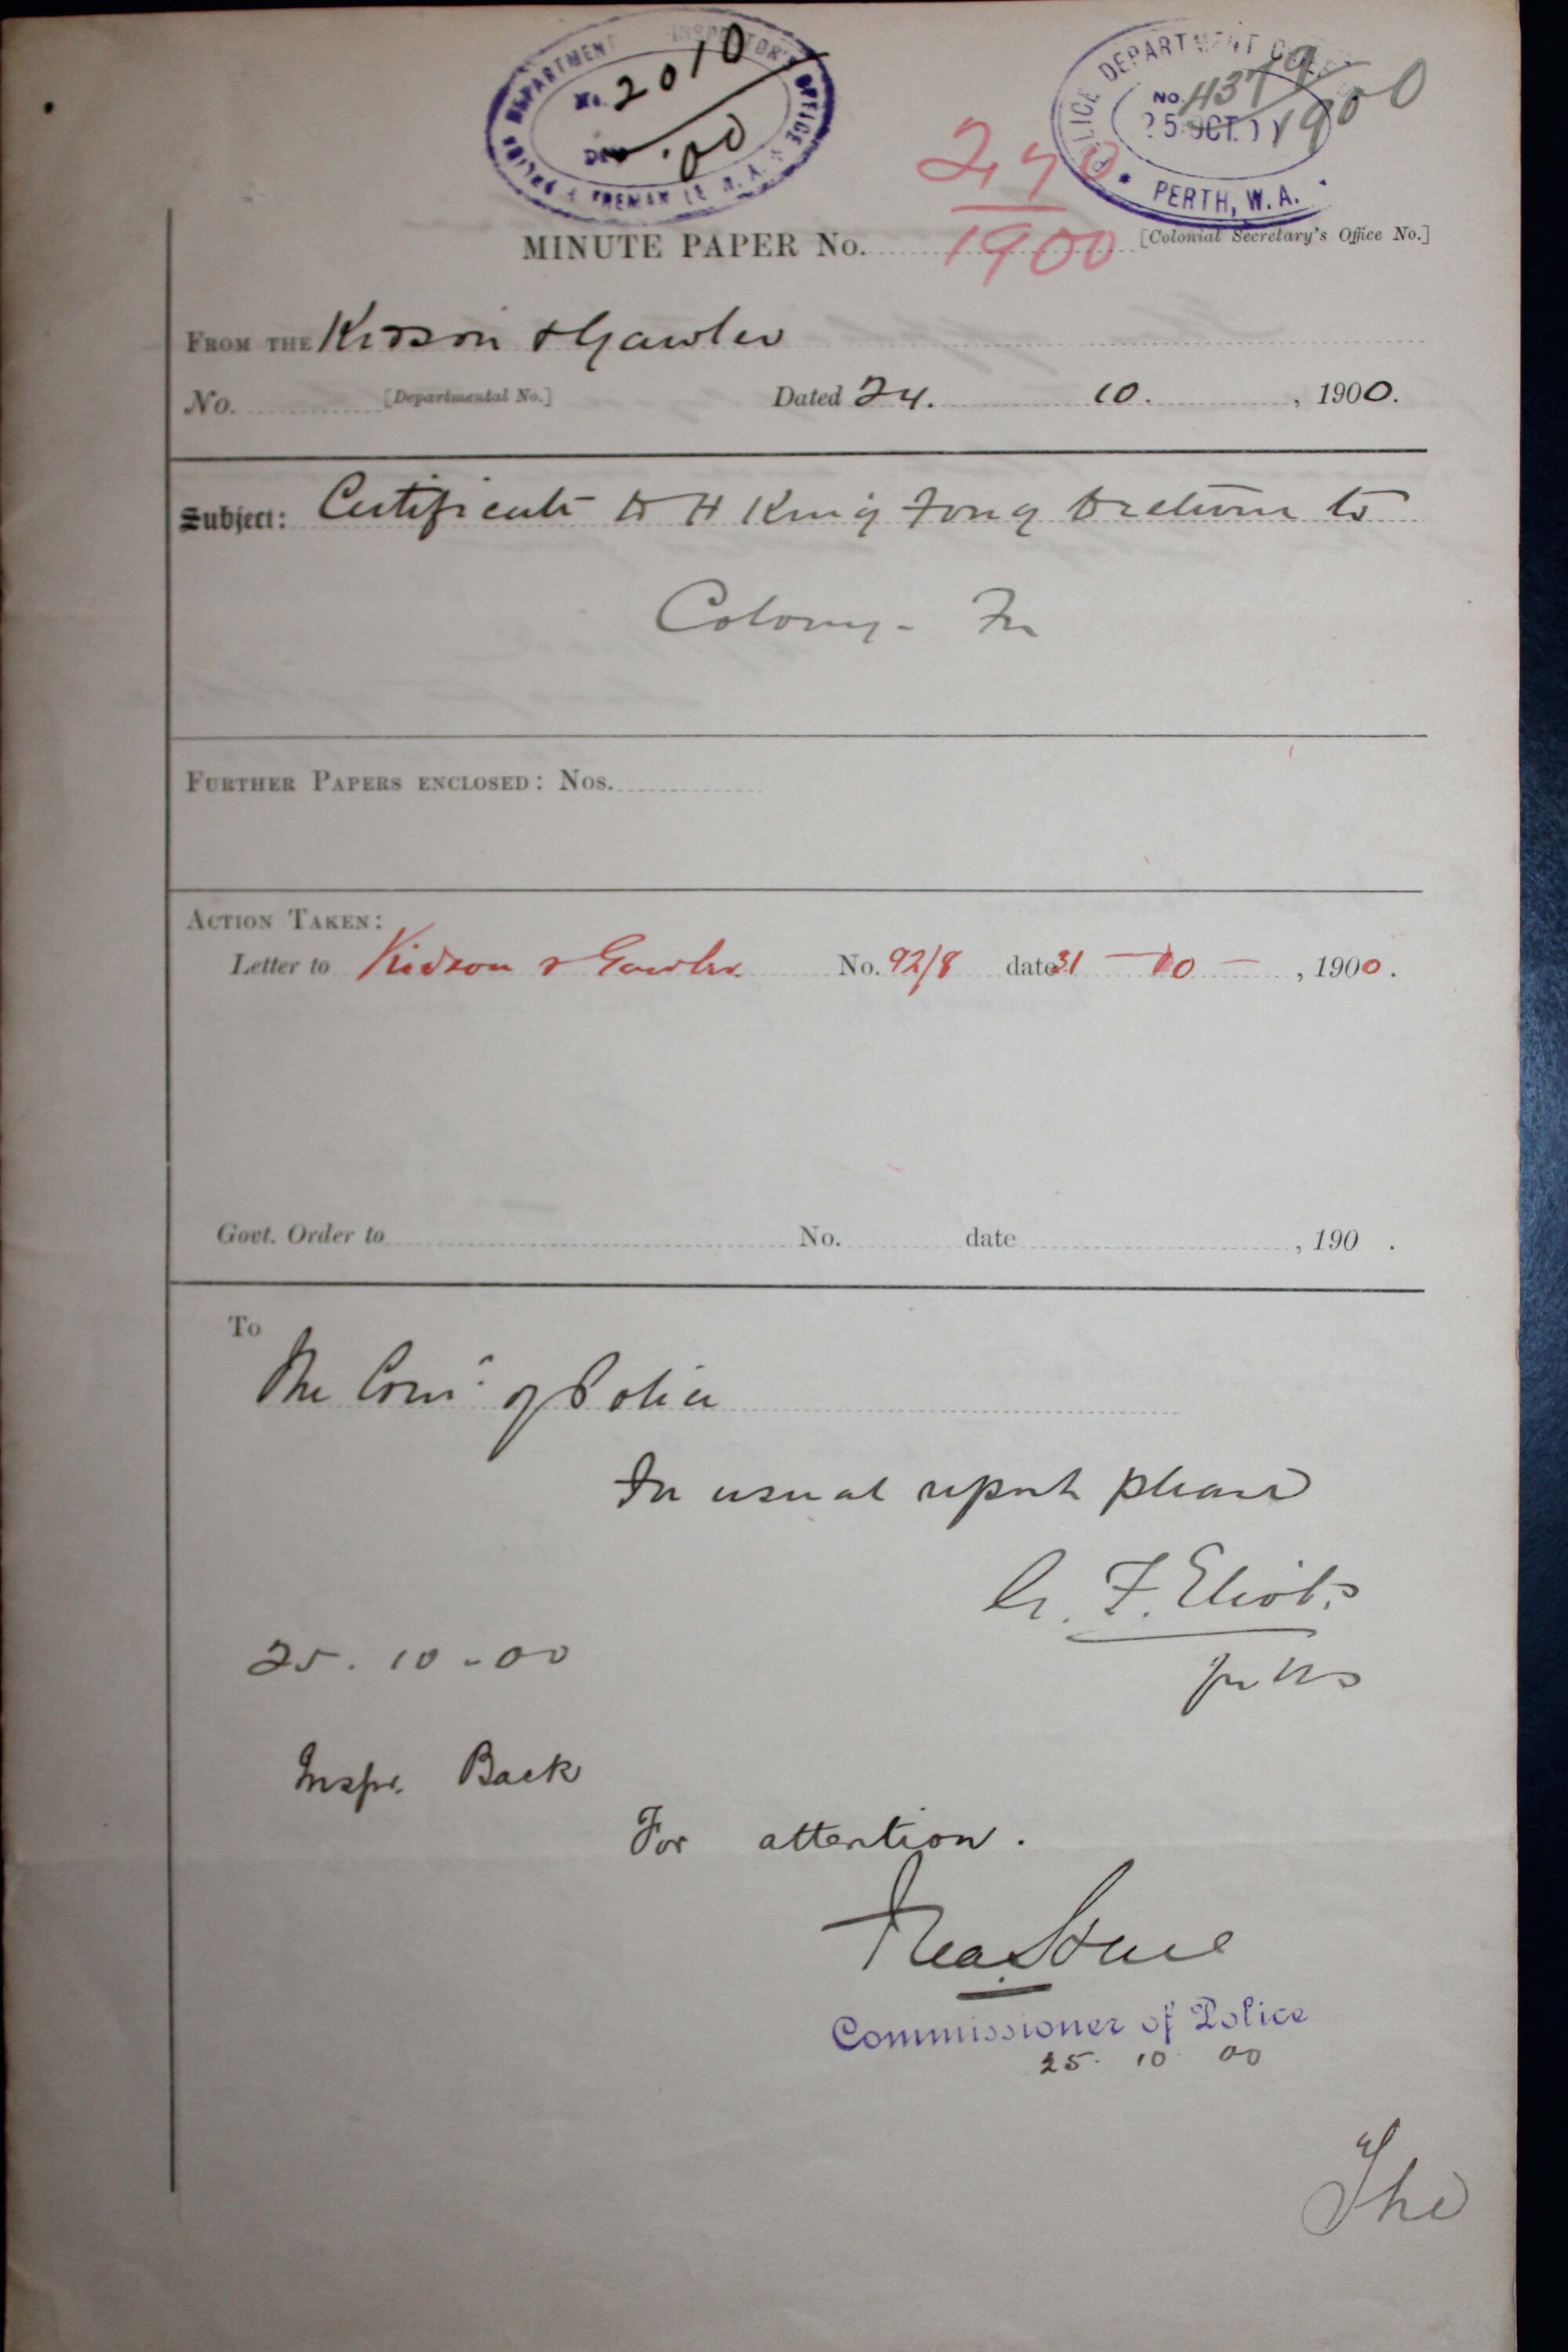 POLICE DEPARTMENT INSPECTOR'S OFFICE
No. 2010
'00
FREMANTLE W.A.
POLICE DEPARTMENT
No. 4379
1900
25 OCT.
PERTH, W.A.
1900
MINUTE PAPER No. [Colonial Secretary's Office No.]
FROM THE Kidson & Gawler
No. [Departmental No.] Dated 24. 10. , 1900.
Subject: Certificate to H King Fong to return to
Colony - For
FURTHER PAPERS ENCLOSED: Nos.
ACTION TAKEN:
Letter to Kidson & Gawler No. 92/8 date 31 - 10 - , 1900.
Govt. Order to No. date , 190 .
To
The Comr. of Police
For usual report please
F. Eliot
25. 10 - 00
Inspr. Back
For attention.
Commissioner of Police
25. 10 00
The